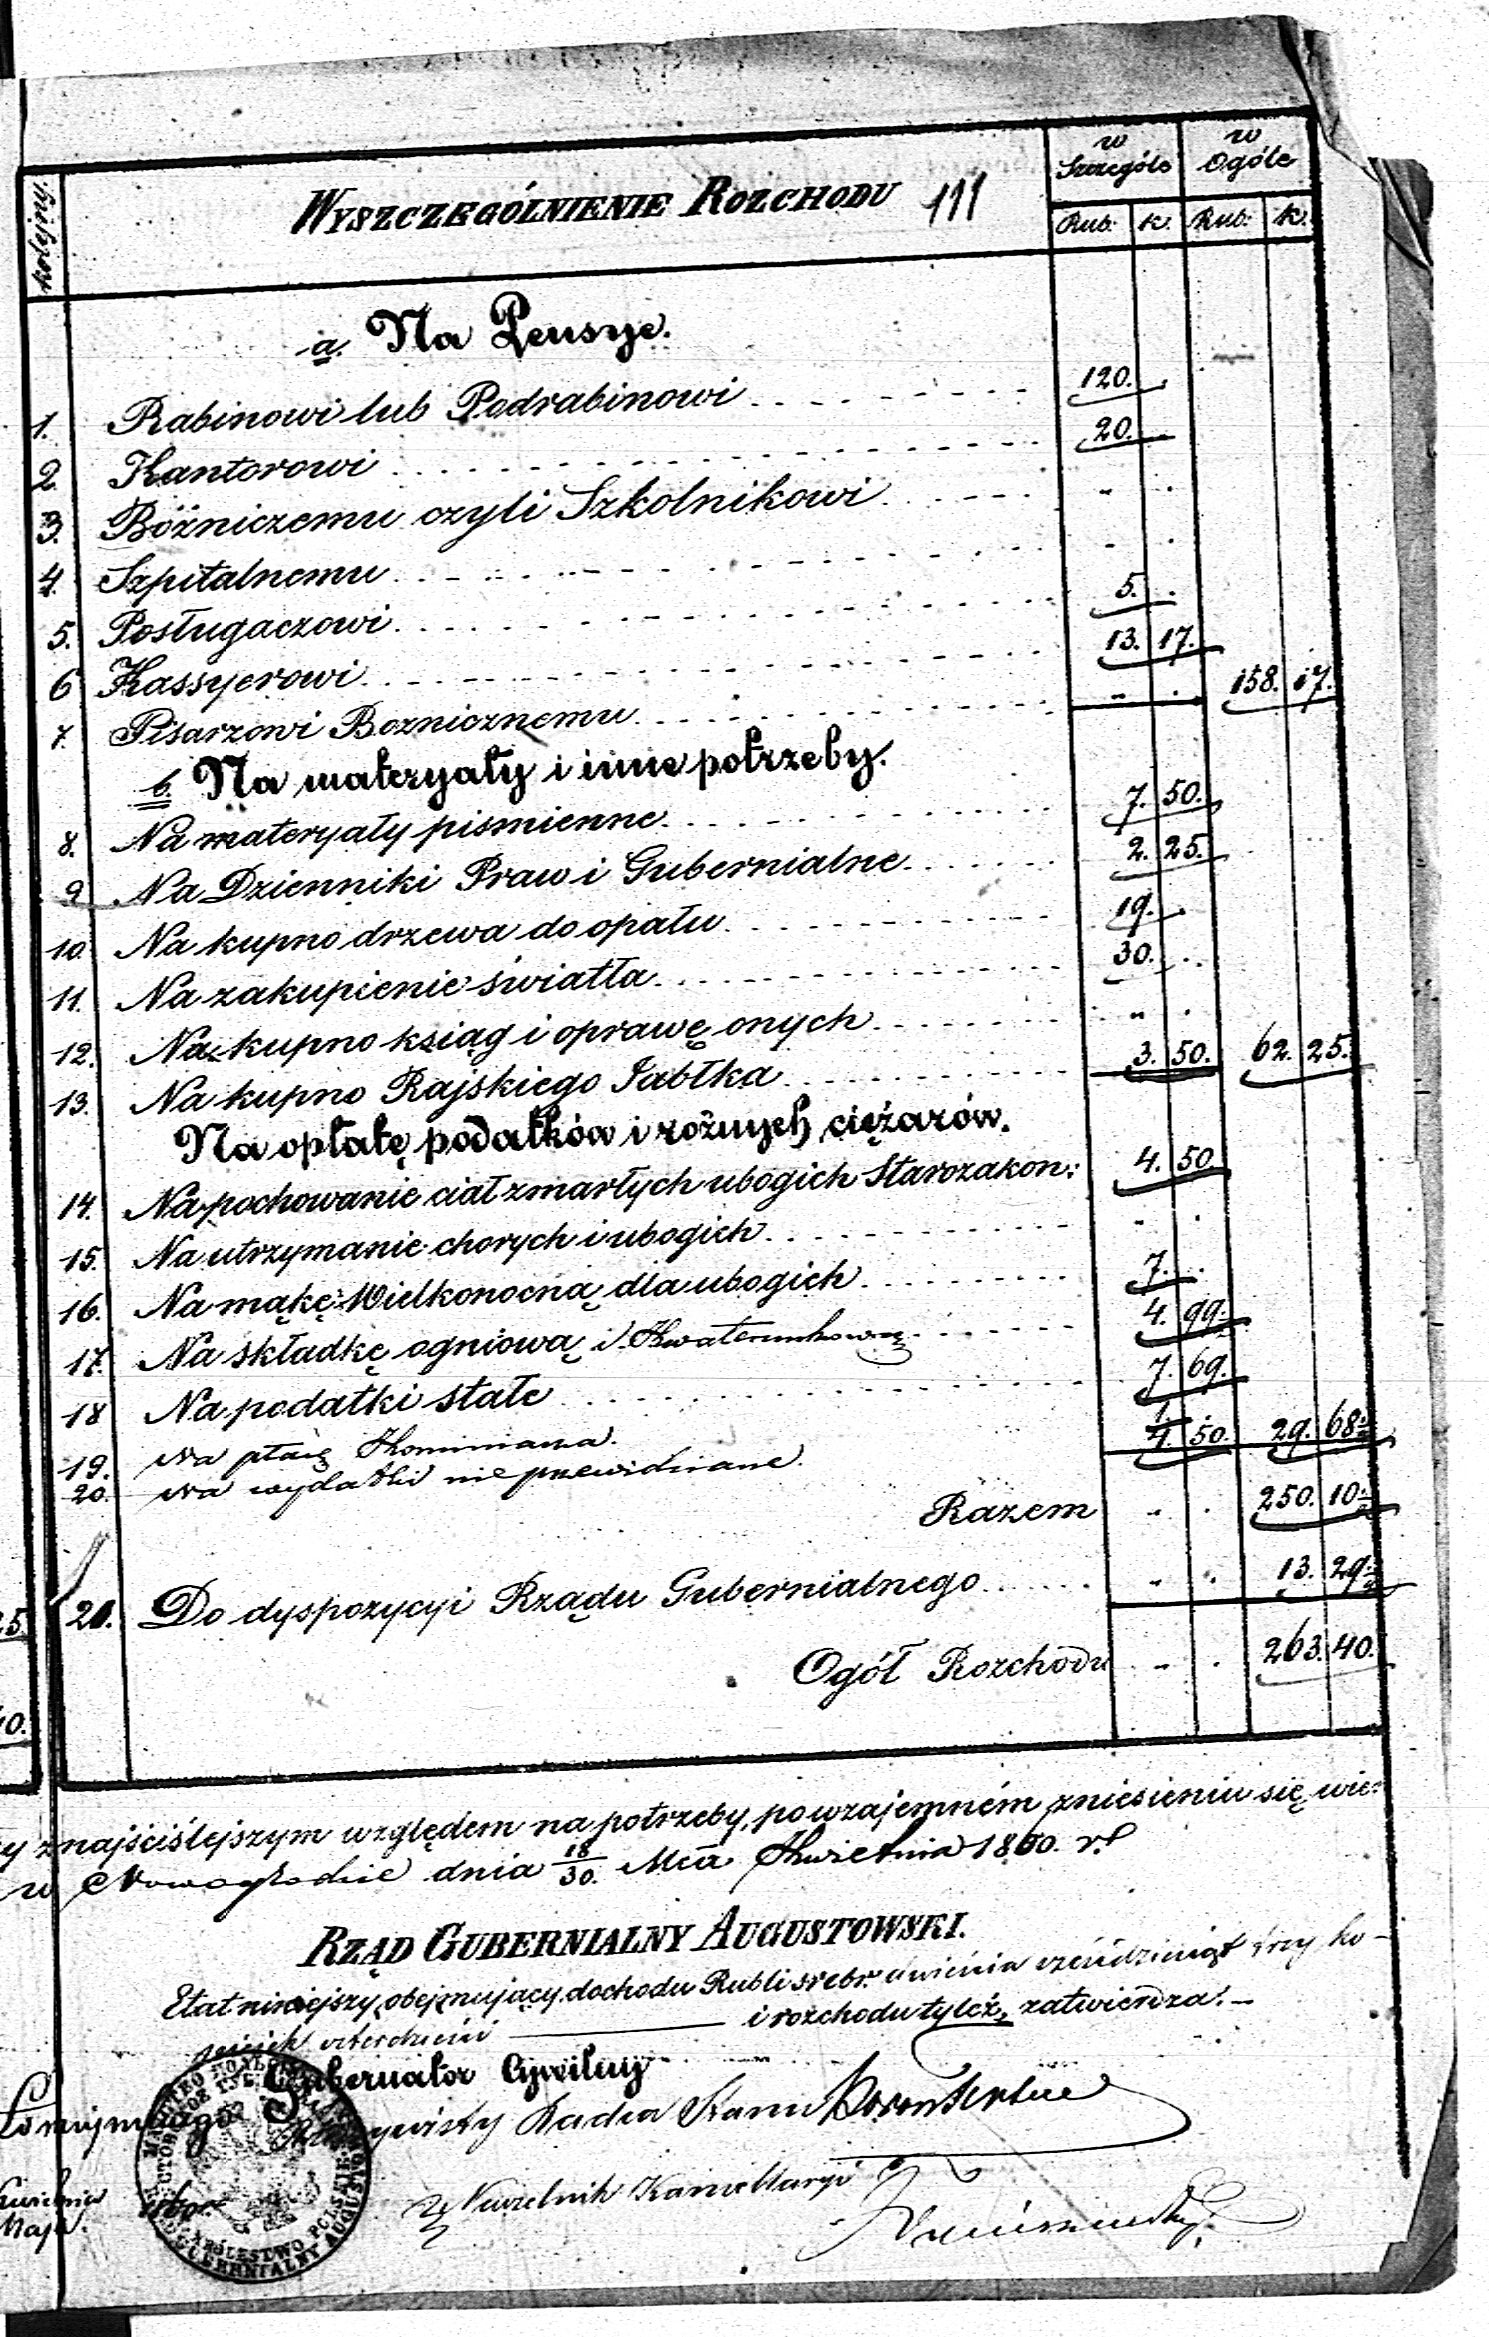 kolejny.
WYSZCZEGÓLNIENIE ROZCHODU 111
w Szczególe
w Ogóle
Rub: k. Rub: k.
a. Na Pensye.
1. Rabinowi lub Podrabinowi 120. .
2. Kantorowi 20. .
3. Bóżniczemu czyli Szkolnikowi " .
4. Szpitalnemu " .
5. Posługaczowi 5. .
6 Kassyerowi 13. 17.
7. Pisarzowi Boznicznemu " . 158. 17.
b. Na materyały i inne potrzeby.
8. Na materyały pismienne 7. 50.
9 Na Dzienniki Praw i Gubernialne 2. 25.
10. Na kupno drzewa do opału 19. .
11. Na zakupienie światła 30. .
12. Na kupno ksiąg i oprawę onych " .
13. Na kupno Rajskiego Jabłka 3. 50. 62. 25.
Na opłatę podatków i rożnych ciężarów.
14. Na pochowanie ciał zmarłych ubogich Starozakon: 4. 50
15. Na utrzymanie chorych i ubogich " .
16. Na mąkę Wielkonocną dla ubogich 7. .
17. Na składkę ogniową i Kwaterunkową 4. 99.
18 Na podatki stałe 7. 69.
19. na płacę Kominiarza. 1. .
20. na wydatki nieprzewidziane. 4. 50. 29. 68 ½
Razem " . 250. 10 ½
21. Do dyspozycyi Rządu Gubernialnego " . 13. 29 ½
Ogół Rozchodu " . 263. 40.
25.
y znajściślejszym względem na potrzeby, po wzajemném zniesieniu się wie:
w Nowogrodzie dnia 18/30. Mca Kwietnia 1860. r.
RZĄD GUBERNIALNY AUGUSTOWSKI.
Etat niniejszy, obejmujący dochodu Rubli srebr: dwieście sześćdziesiąt trzy ko-
piejek czterdzieści i rozchodu tyleż, zatwierdza.-
Gubernator Cywilny
Rzeczywisty Radca Stanu
Naczelnik Kancellaryi
Kwietnia
Maja.
KRÓLESTWO POLSKIE